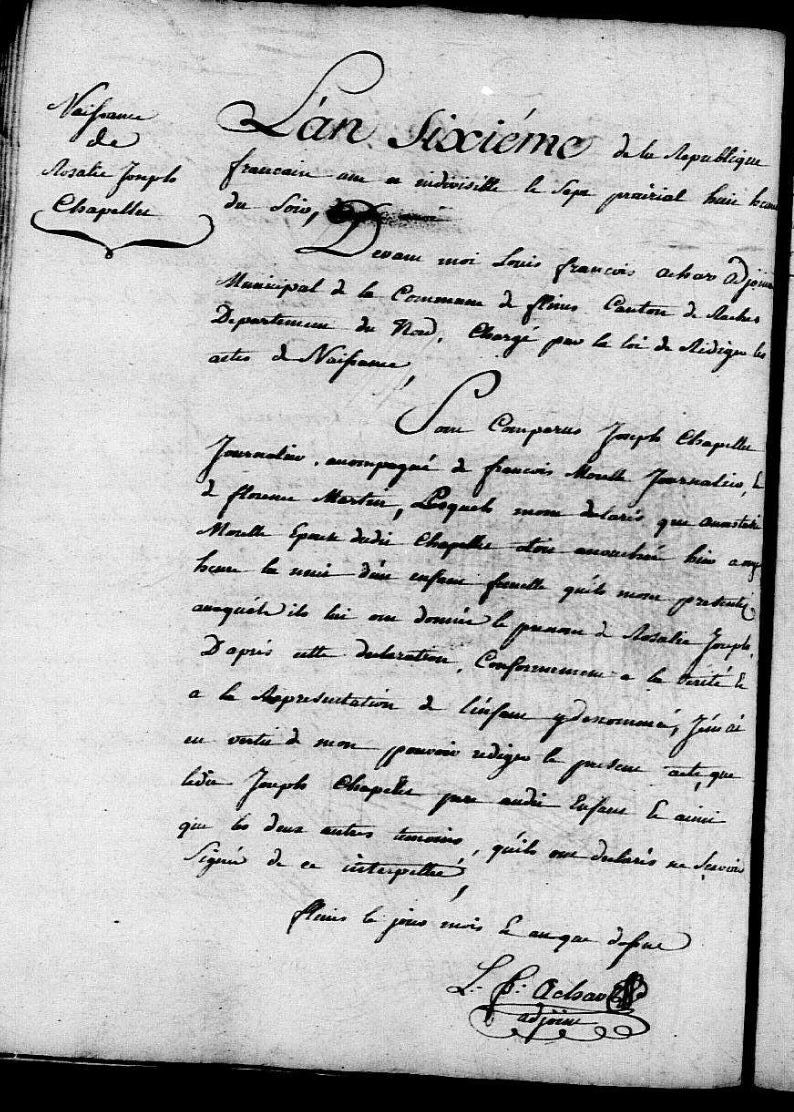 Naissance
de
Rosalie Joseph
Chapelle
L'an Sixiéme de la Republique
francaise une et indivisible le Sept prairial huit heure
du Soir,
Devant moi Louis françois achar adjoint
Municipal de la Commune de flines Canton de Raches
Departement du Nord, Chargé par la loi de Rediger les
actes de Naissance,
Sont Comparus Joseph Chapelle
Journalier, acompagné de françois Morelle Journalier, et
de florence Martin, Lesquels mont declarés que
Morelle Epouse dudit Chapelle etoit accouchée hier a onze
heure la nuit d'un enfant femelle quils mont presentés
auquéle ils lui ont donnée le prenom de Rosalie Joseph,
Daprés cette declaration, Conformement a la verité et
a la Representation de l'enfant denommé, J'en ai
en vertu de mon pouvoir rediger le present acte, que
ledit Joseph Chapelle pere audit Enfant et ainsi
que les deux autres temoins, quils ont declarés ne Scavoir
Signér de ce interpellé,
flines le jour mois et an que dessus
L. f: Achar
adjoint